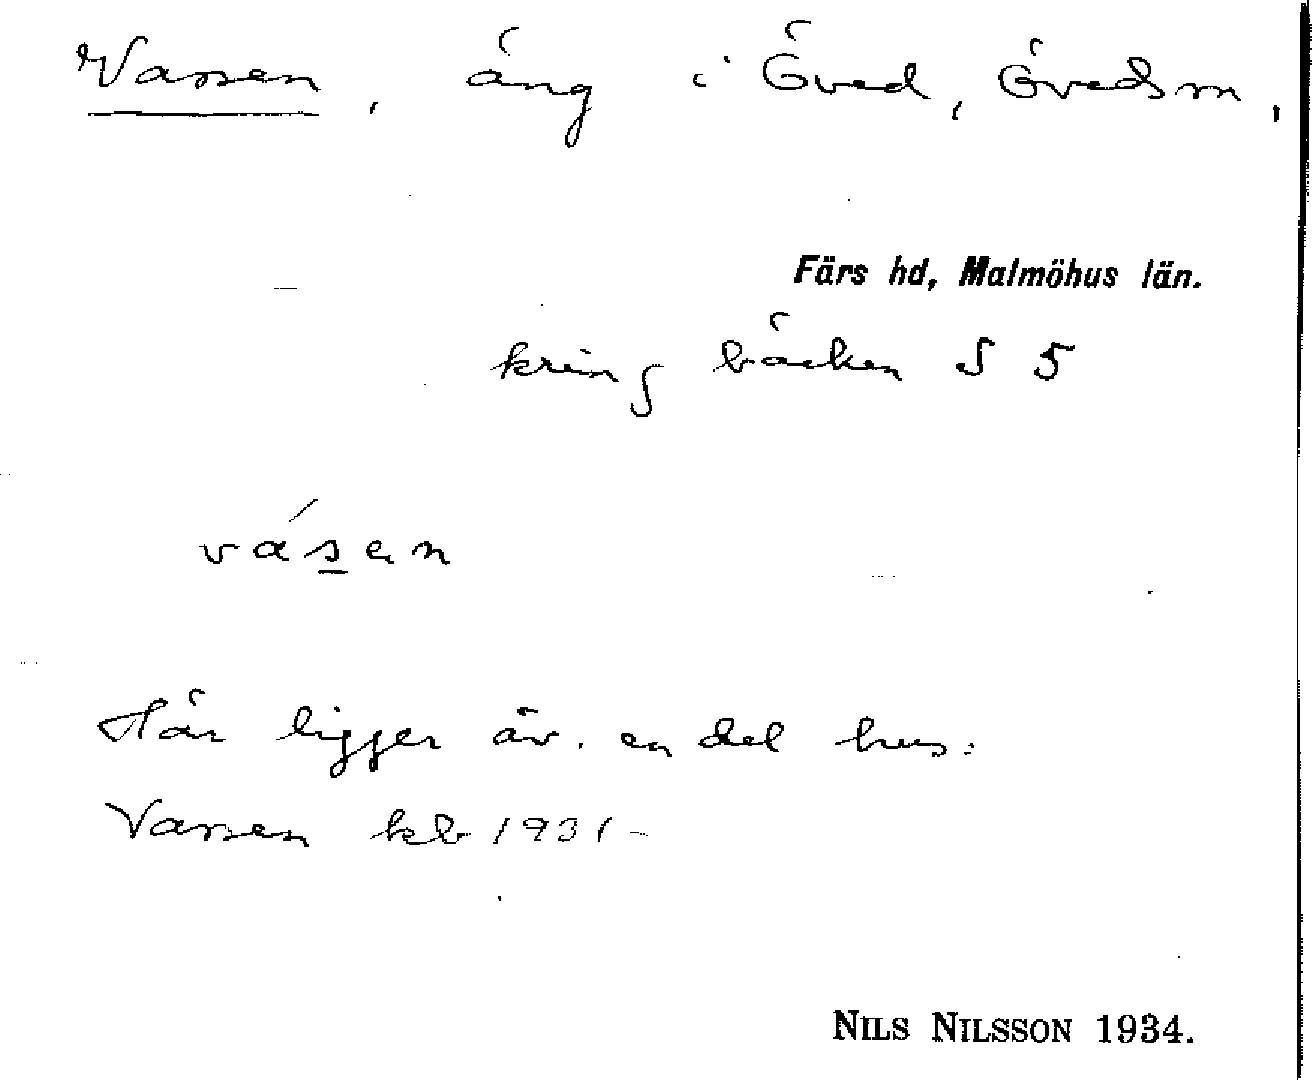 Vassen, äng i Öved, Övedsm,
Färs hd, Malmöhus län.
kring bäcken S 5
vásen
Här ligger äv. en del hus:
Vassen kb 1931-
NILS NILSSON 1934.